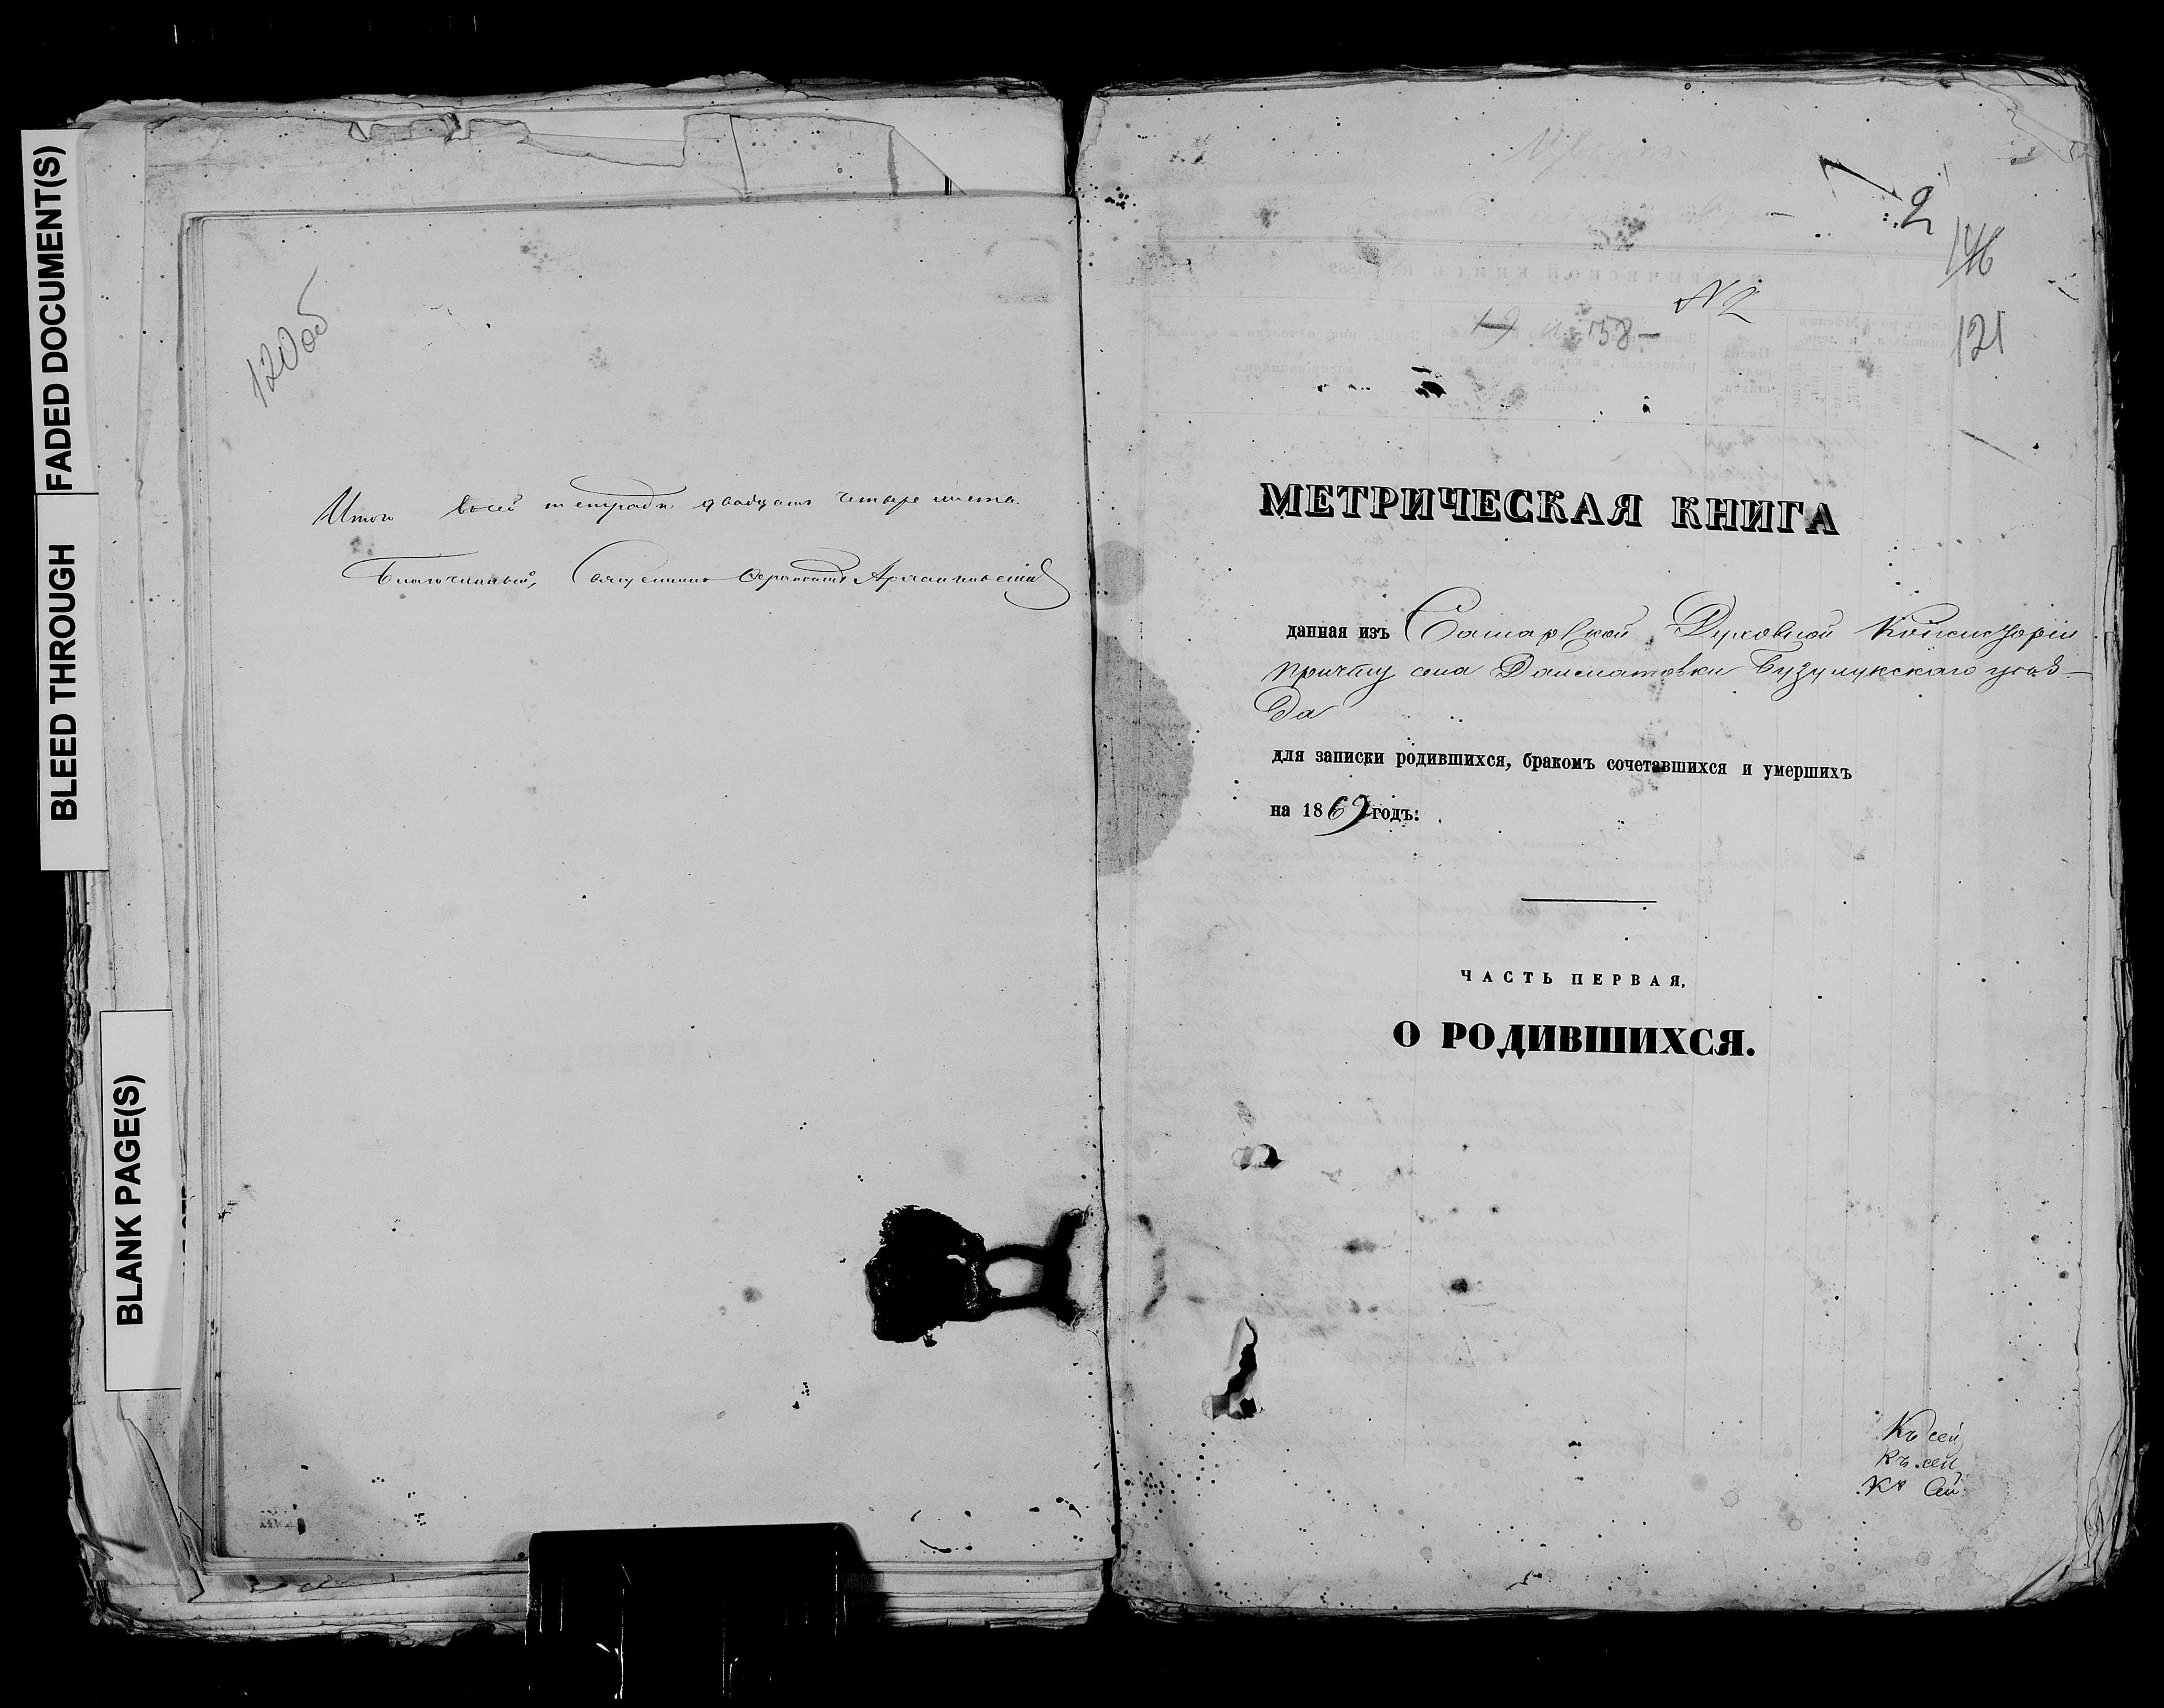 FADED DOCUMENT(S)
BLEED THROUGH
BLANK PAGE(S)
120об
Итого всей тетради двадцать четыре листа.
Благочинный, Священникъ Архангельскій
2
146
N 2
158
121
МЕТРИЧЕСКАЯ КНИГА
данная изъ Самарской Духовной Консисторіи
причту села Далматовки Бузулукскаго уѣз-
да
для записки родившихся, бракомъ сочетавшихся и умершихъ
на 1869 годъ:
ЧАСТЬ ПЕРВАЯ,
О РОДИВШИХСЯ.
Къ сей
Къ сей
Къ сей